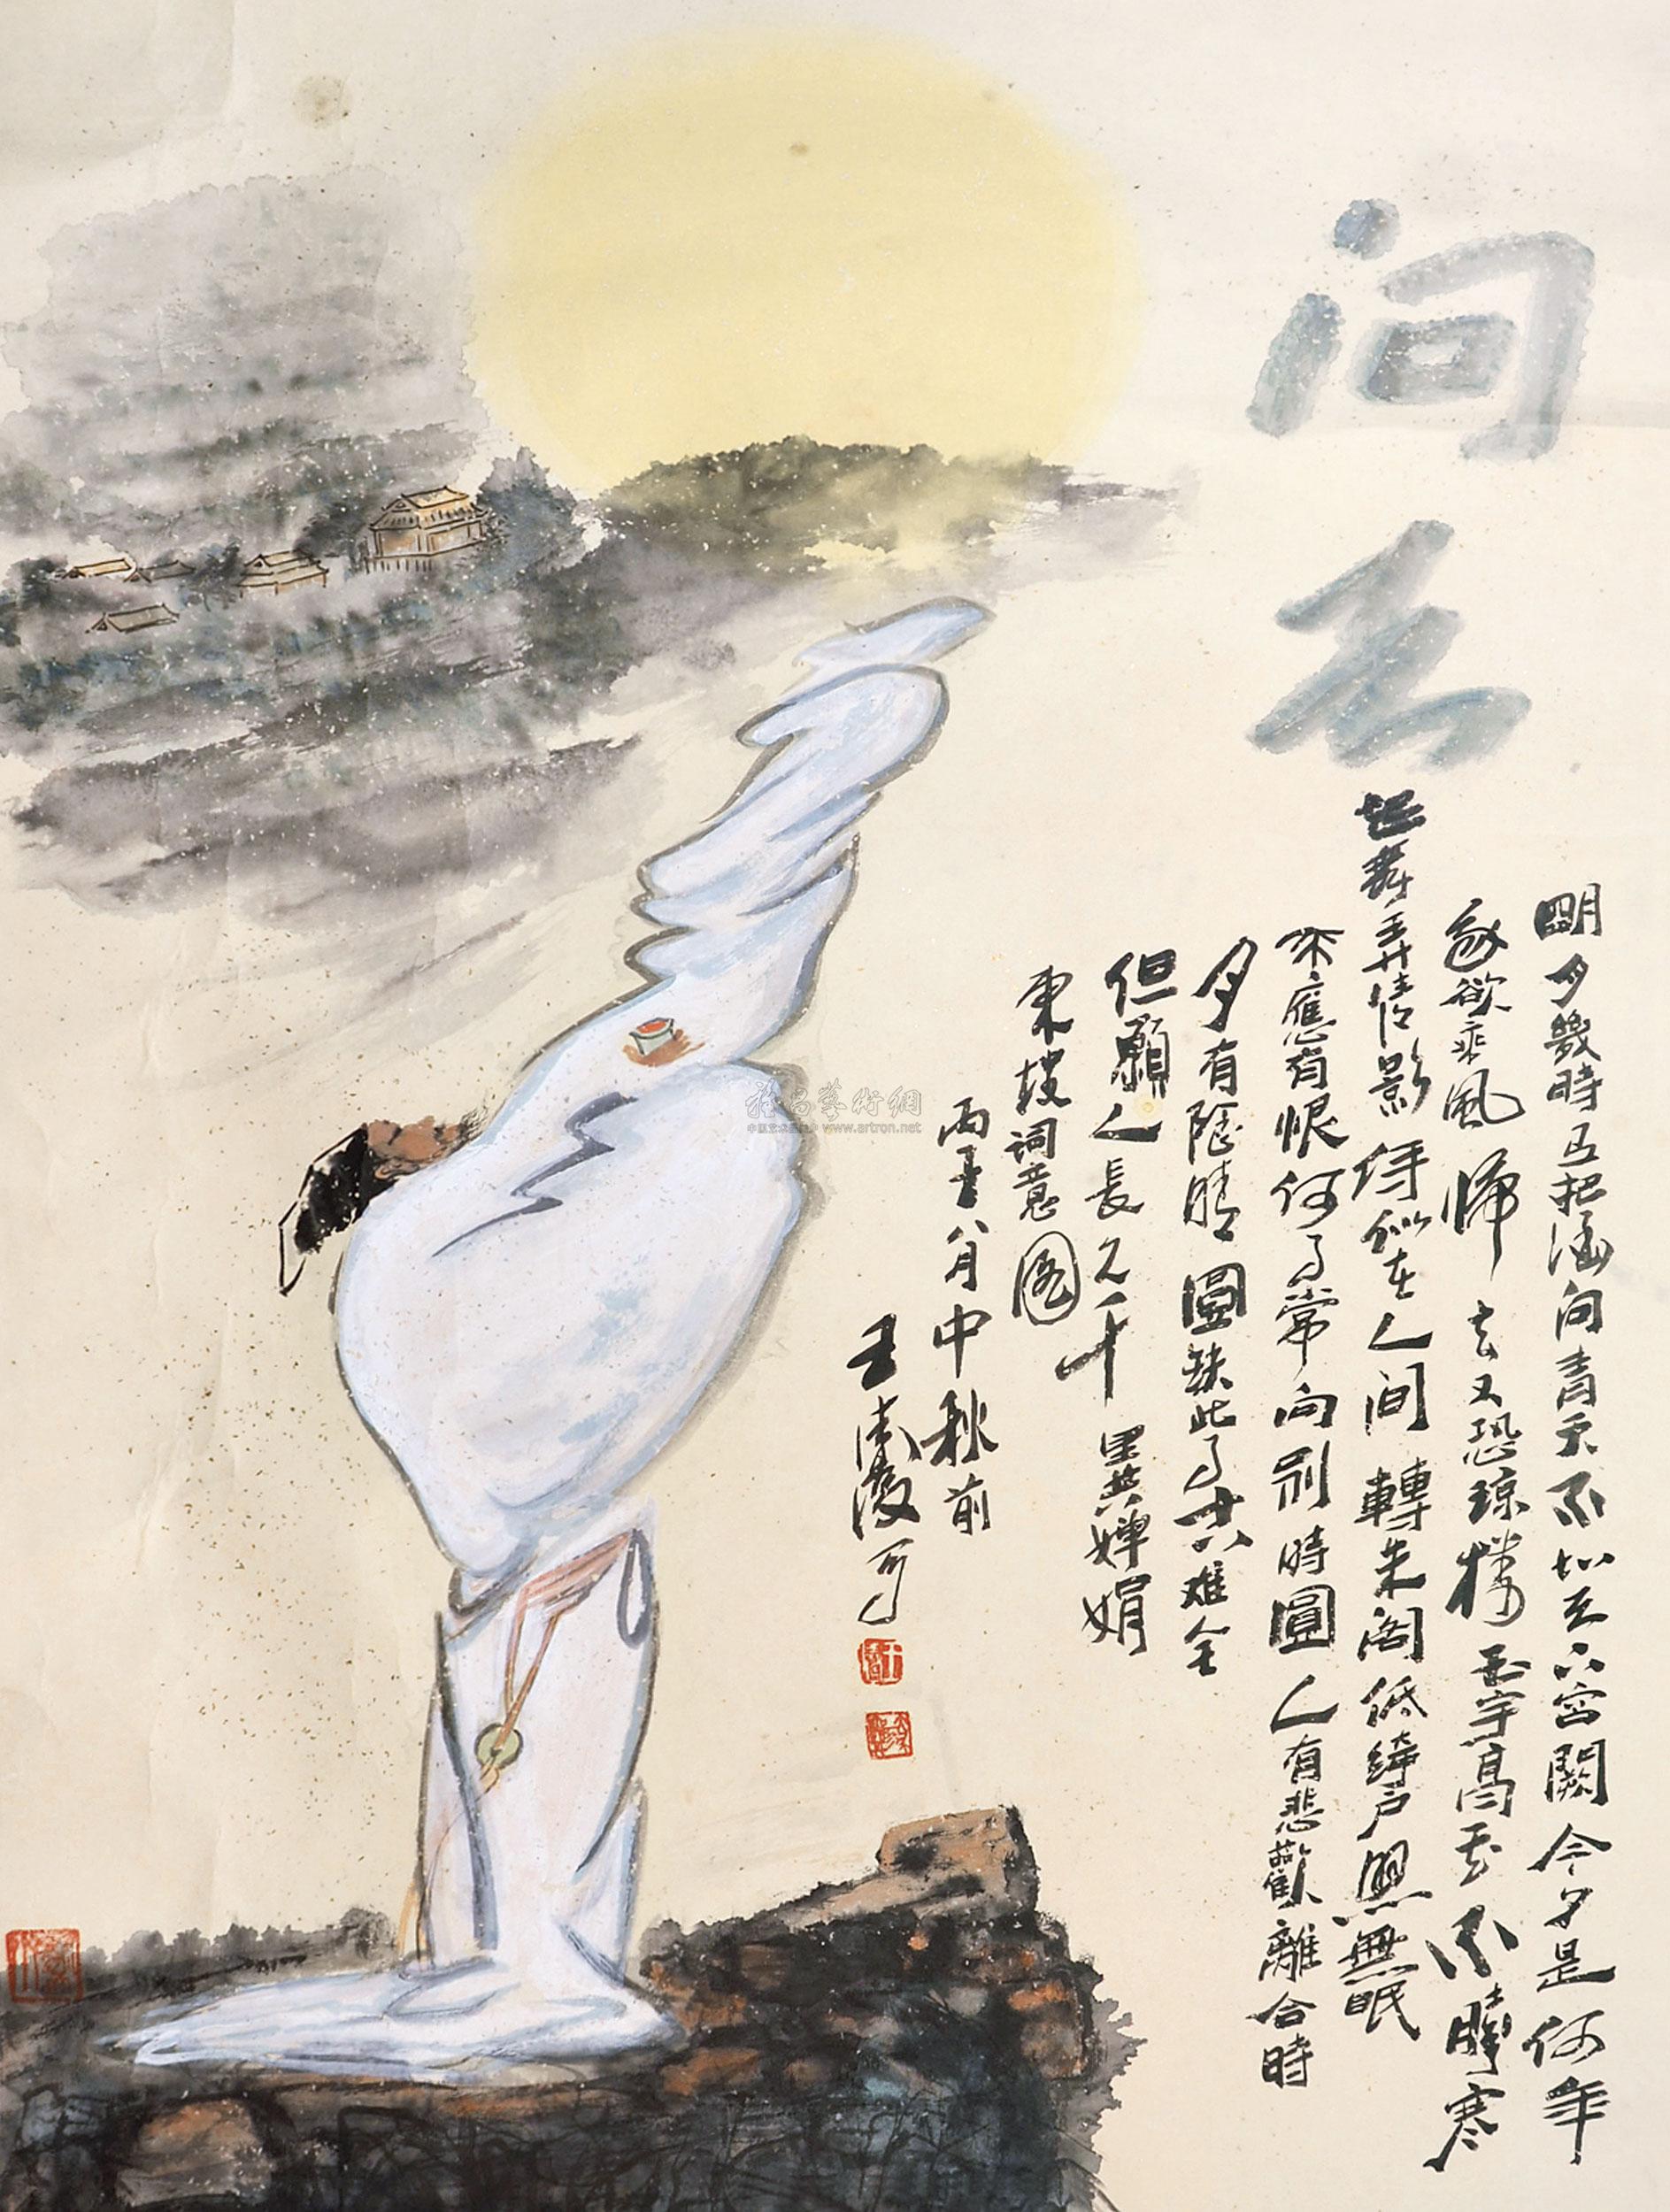 问天
明月幾時有把酒问青天不知天上宮闕今夕是何年
我欲乘風归去又恐琼楼玉宇高處不勝寒
起舞弄清影何似在人间轉朱阁低绮户照無眠
不應有恨何事常向别時圓人有悲歡離合時
月有陰晴圓缺此事古难全
但願人長久千里共婵娟
東坡词意图
丙子八月中秋前
王涛写
雅昌藝術網
www.artron.net